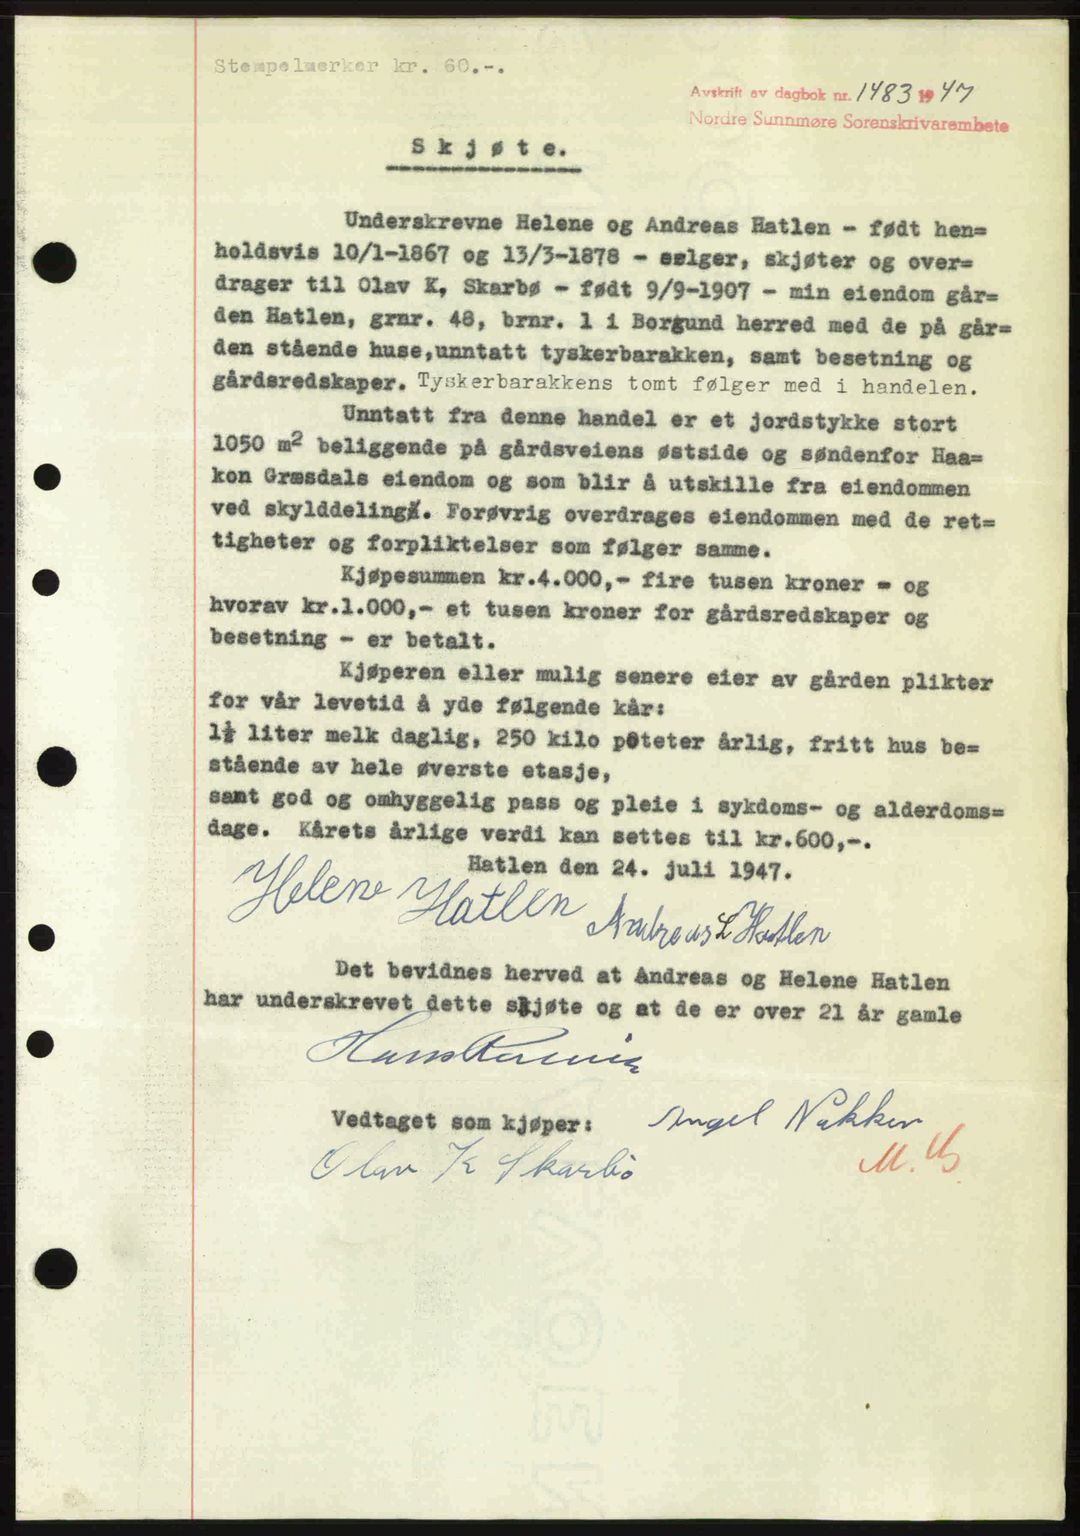 Stempelmerker kr. 60.-.
Avskrift av dagbok nr. 1483 1947
Nordre Sunnmøre Sorenskrivarembete
Skjøte.
Underskrevne Helene og Andreas Hatlen - født hen=
holdsvis 10/1-1867 og 13/3-1878 - selger, skjøter og over=
drager til Olav K, Skarbø - født 9/9-1907 - min eiendom går=
den Hatlen, grnr. 48, brnr. 1 i Borgund herred med de på går=
den stående huse,unntatt tyskerbarakken, samt besetning og
gårdsredskaper. Tyskerbarakkens tomt følger med i handelen.
Unntatt fra denne handel er et jordstykke stort
1050 m2 beliggende på gårdsveiens østside og søndenfor Haa=
kon Græsdals eiendom og som blir å utskille fra eiendommen
ved skylddeling. Forøvrig overdrages eiendommen med de ret=
tigheter og forpliktelser som følger samme.
Kjøpesummen kr.4.000,- fire tusen kroner - og
hvorav kr.1.000,- et tusen kroner for gårdsredskaper og
besetning - er betalt.
Kjøperen eller mulig senere eier av gården plikter
for vår levetid å yde følgende kår:
1½ liter melk daglig, 250 kilo poteter årlig, fritt hus be=
stående av hele øverste etasje,
samt god og omhyggelig pass og pleie i sykdoms- og alderdoms=
dage. Kårets årlige verdi kan settes til kr.600,-.
Hatlen den 24. juli 1947.
Helene Hatlen Andreas L Hatlen
Det bevidnes herved at Andreas og Helene Hatlen
har underskrevet dette skjøte og at de er over 21 år gamle
Vedtaget som kjøper: Angel Nakken
Olav K Skarbø